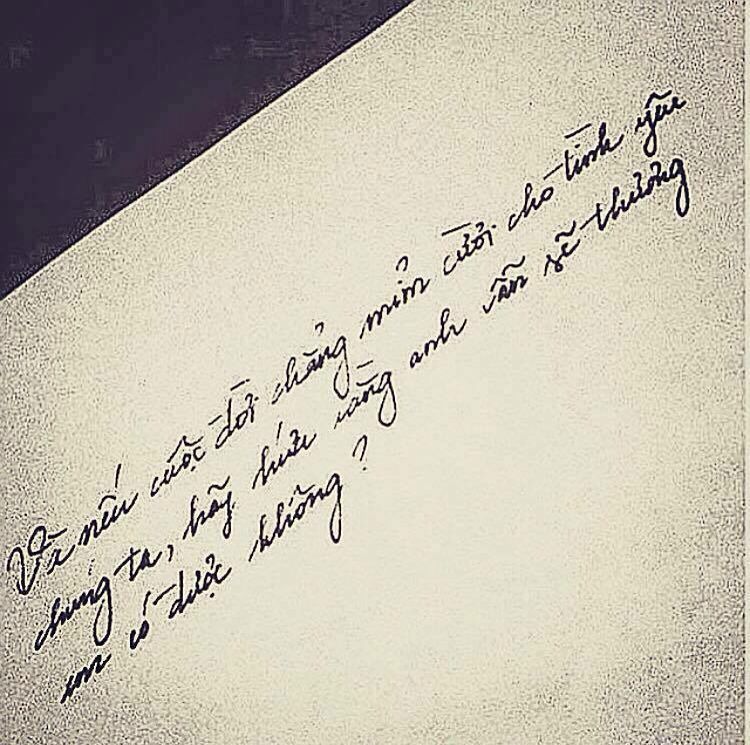 Vì nếu cuộc đời chẳng mỉm cười cho tình yêu
chúng ta, hãy hứa rằng anh vẫn sẽ thương
em có được không?